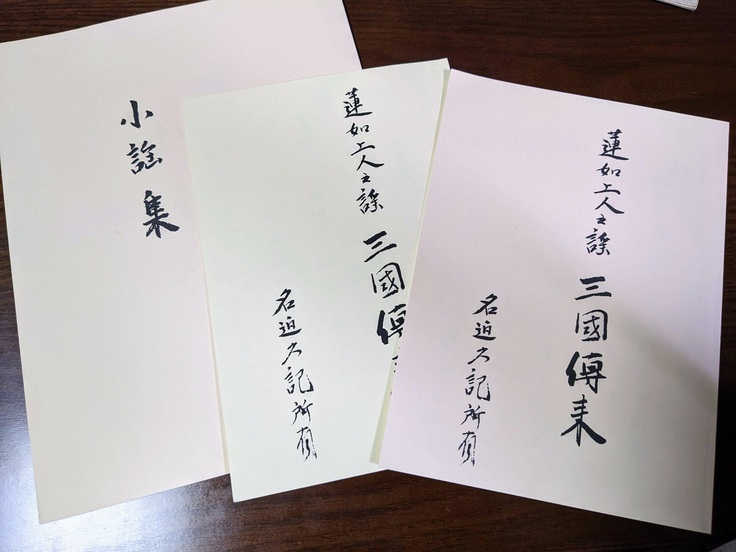 小謡集
蓮如上人之謡
三國傳
名迫久記所有
蓮如上人之謡
三國傳来
名迫久記所有